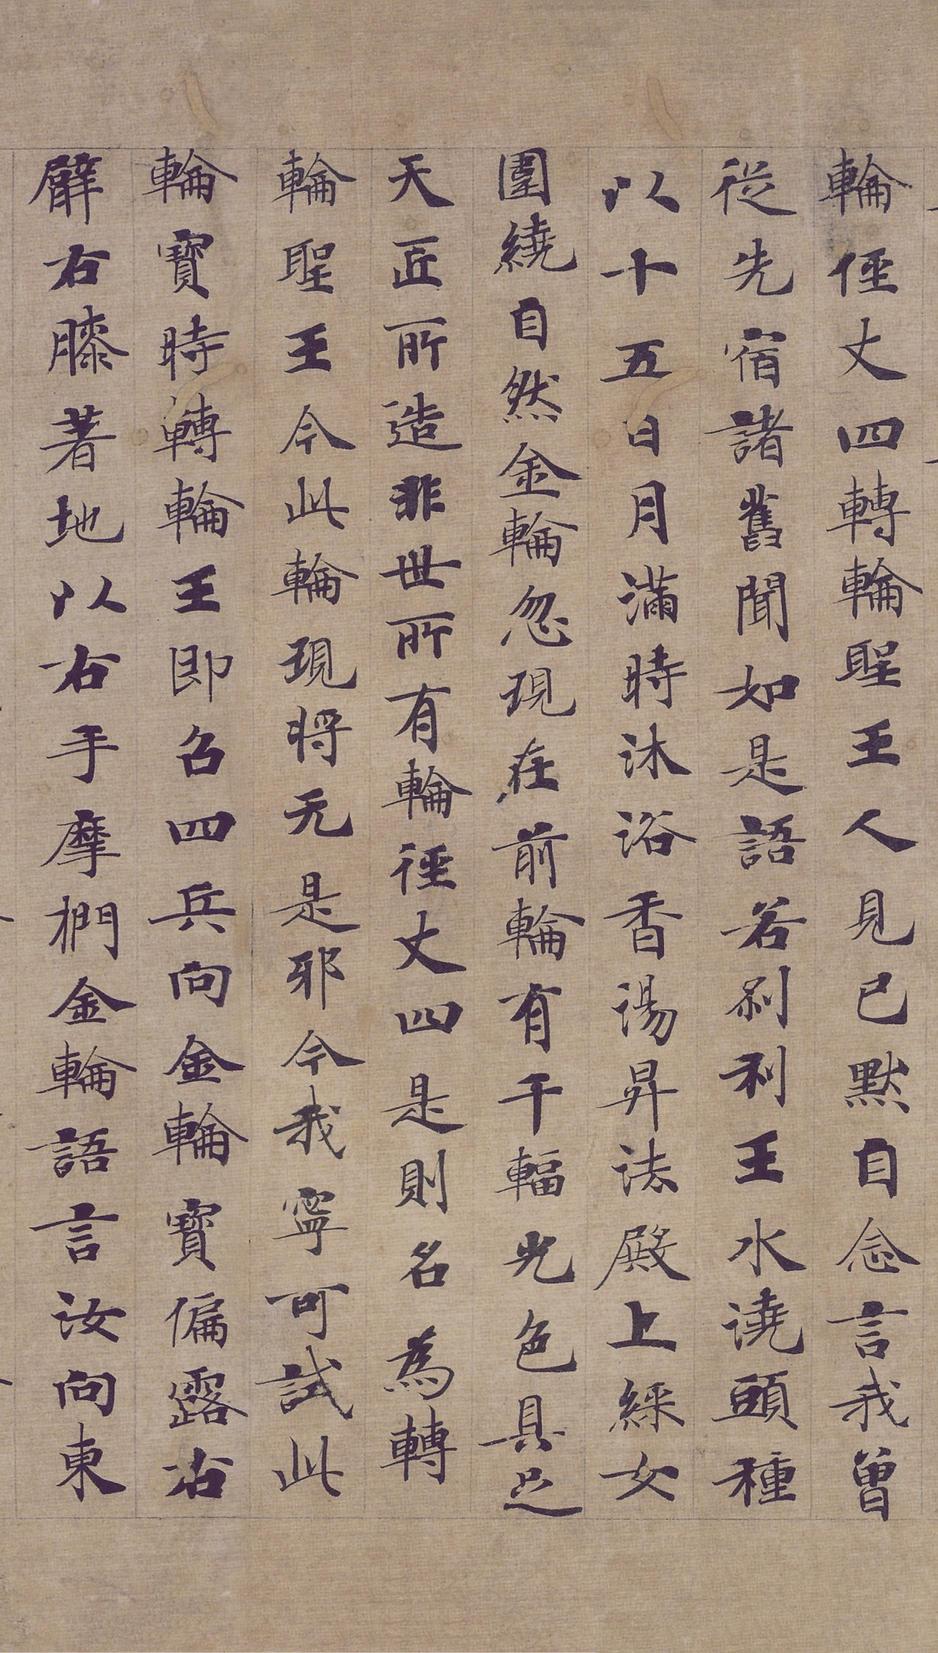 輪俓丈四轉輪聖王人見已默自念言我曾
従先宿諸舊聞如是語若刹利王水澆頭種
以十五日月滿時沐浴香湯昇法殿上綵女
圍繞自然金輪忽現在前輪有千輻光色具足
天匠所造非世所有輪徑丈四是則名為轉
輪聖王今此輪現将无是耶今我寧可試此
輪寶時轉輪王即召四兵向金輪寶偏露右
臂右膝著地以右手摩捫金輪語言汝向東